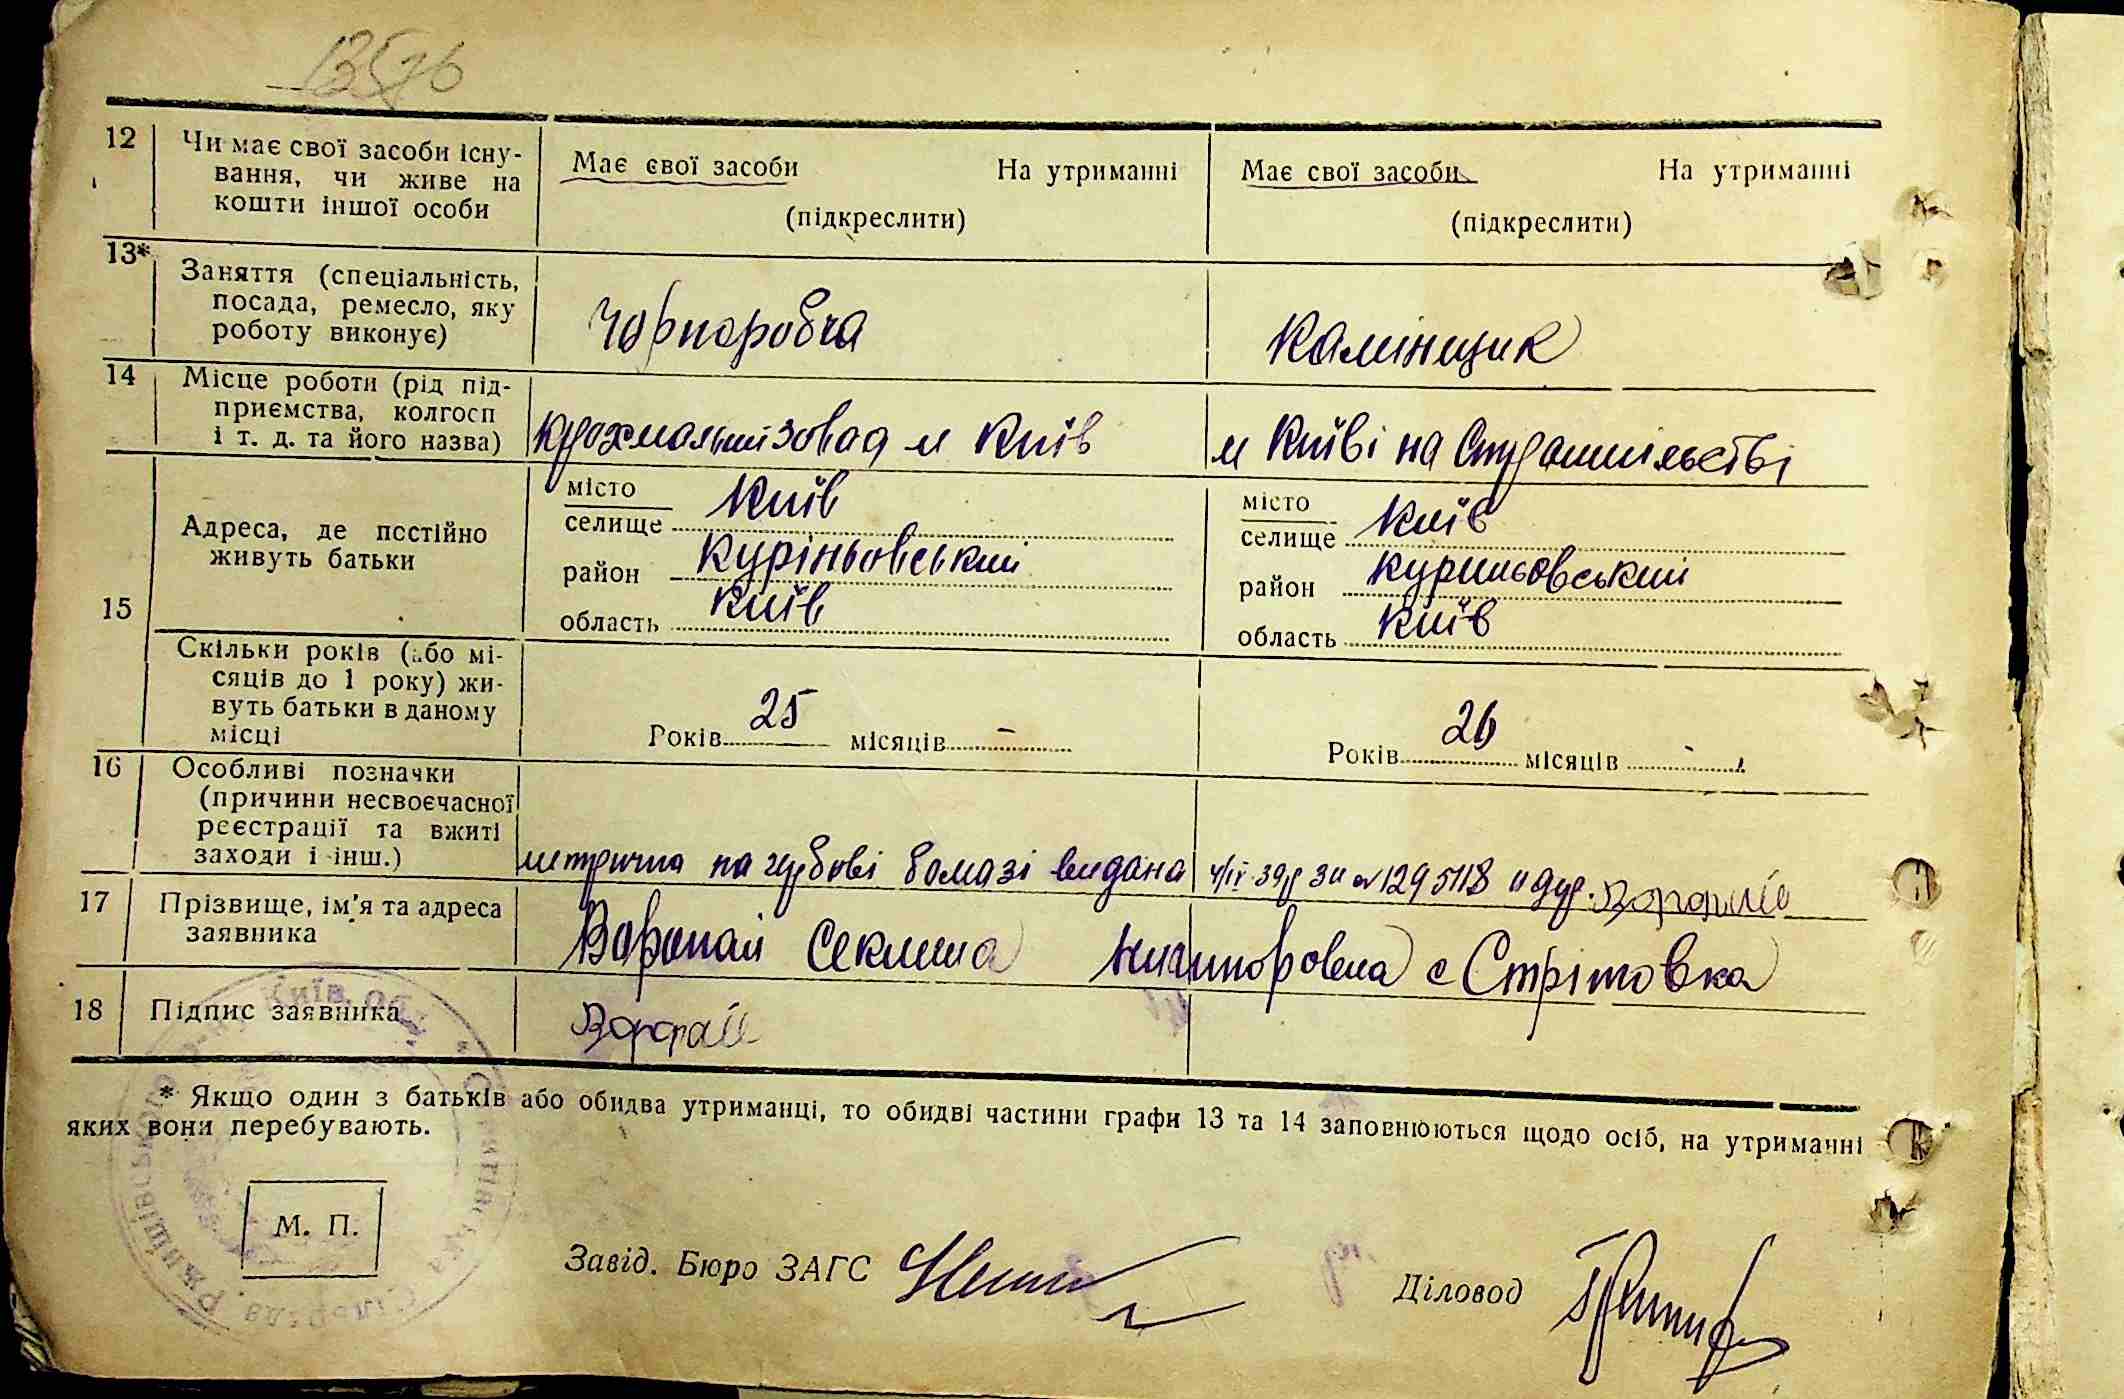 12 Чи має свої засоби існу-
вання, чи живе на
кошти іншої особи
Має свої засоби На утриманні
(підкреслити)
Має свої засоби На утриманні
(підкреслити)
13* Заняття (спеціальність,
посада, ремесло, яку
роботу виконує)
Чорноробча
Камінщик
14 Місце роботи (рід під-
приємства, колгосп
і т. д. та його назва)
Крохмальний завод м Київ
м Київі на
15 Адреса, де постійно
живуть батьки
місто
селище Київ
район Куріньовський
область Київ
місто
селище Київ
район Куриньовський
область Київ
Скільки років (або мі-
сяців до 1 року) жи-
вуть батьки в даному
місці
Років 25 місяців -
Років 26 місяців -
16 Особливі позначки
(причини несвоєчасної
реєстрації та вжиті
заходи і інш.)
метрична на гербові бомазі видана 4/IV-39р
17 Прізвище, ім'я та адреса
заявника
Воропай Секлета Ничипоровна с Стрітовка
18 Підпис заявника
Воропай
* Якщо один з батьків або обидва утриманці, то обидві частини графи 13 та 14 заповнюються щодо осіб, на утриманні
яких вони перебувають.
М. П.
Завід. Бюро ЗАГС
Діловод